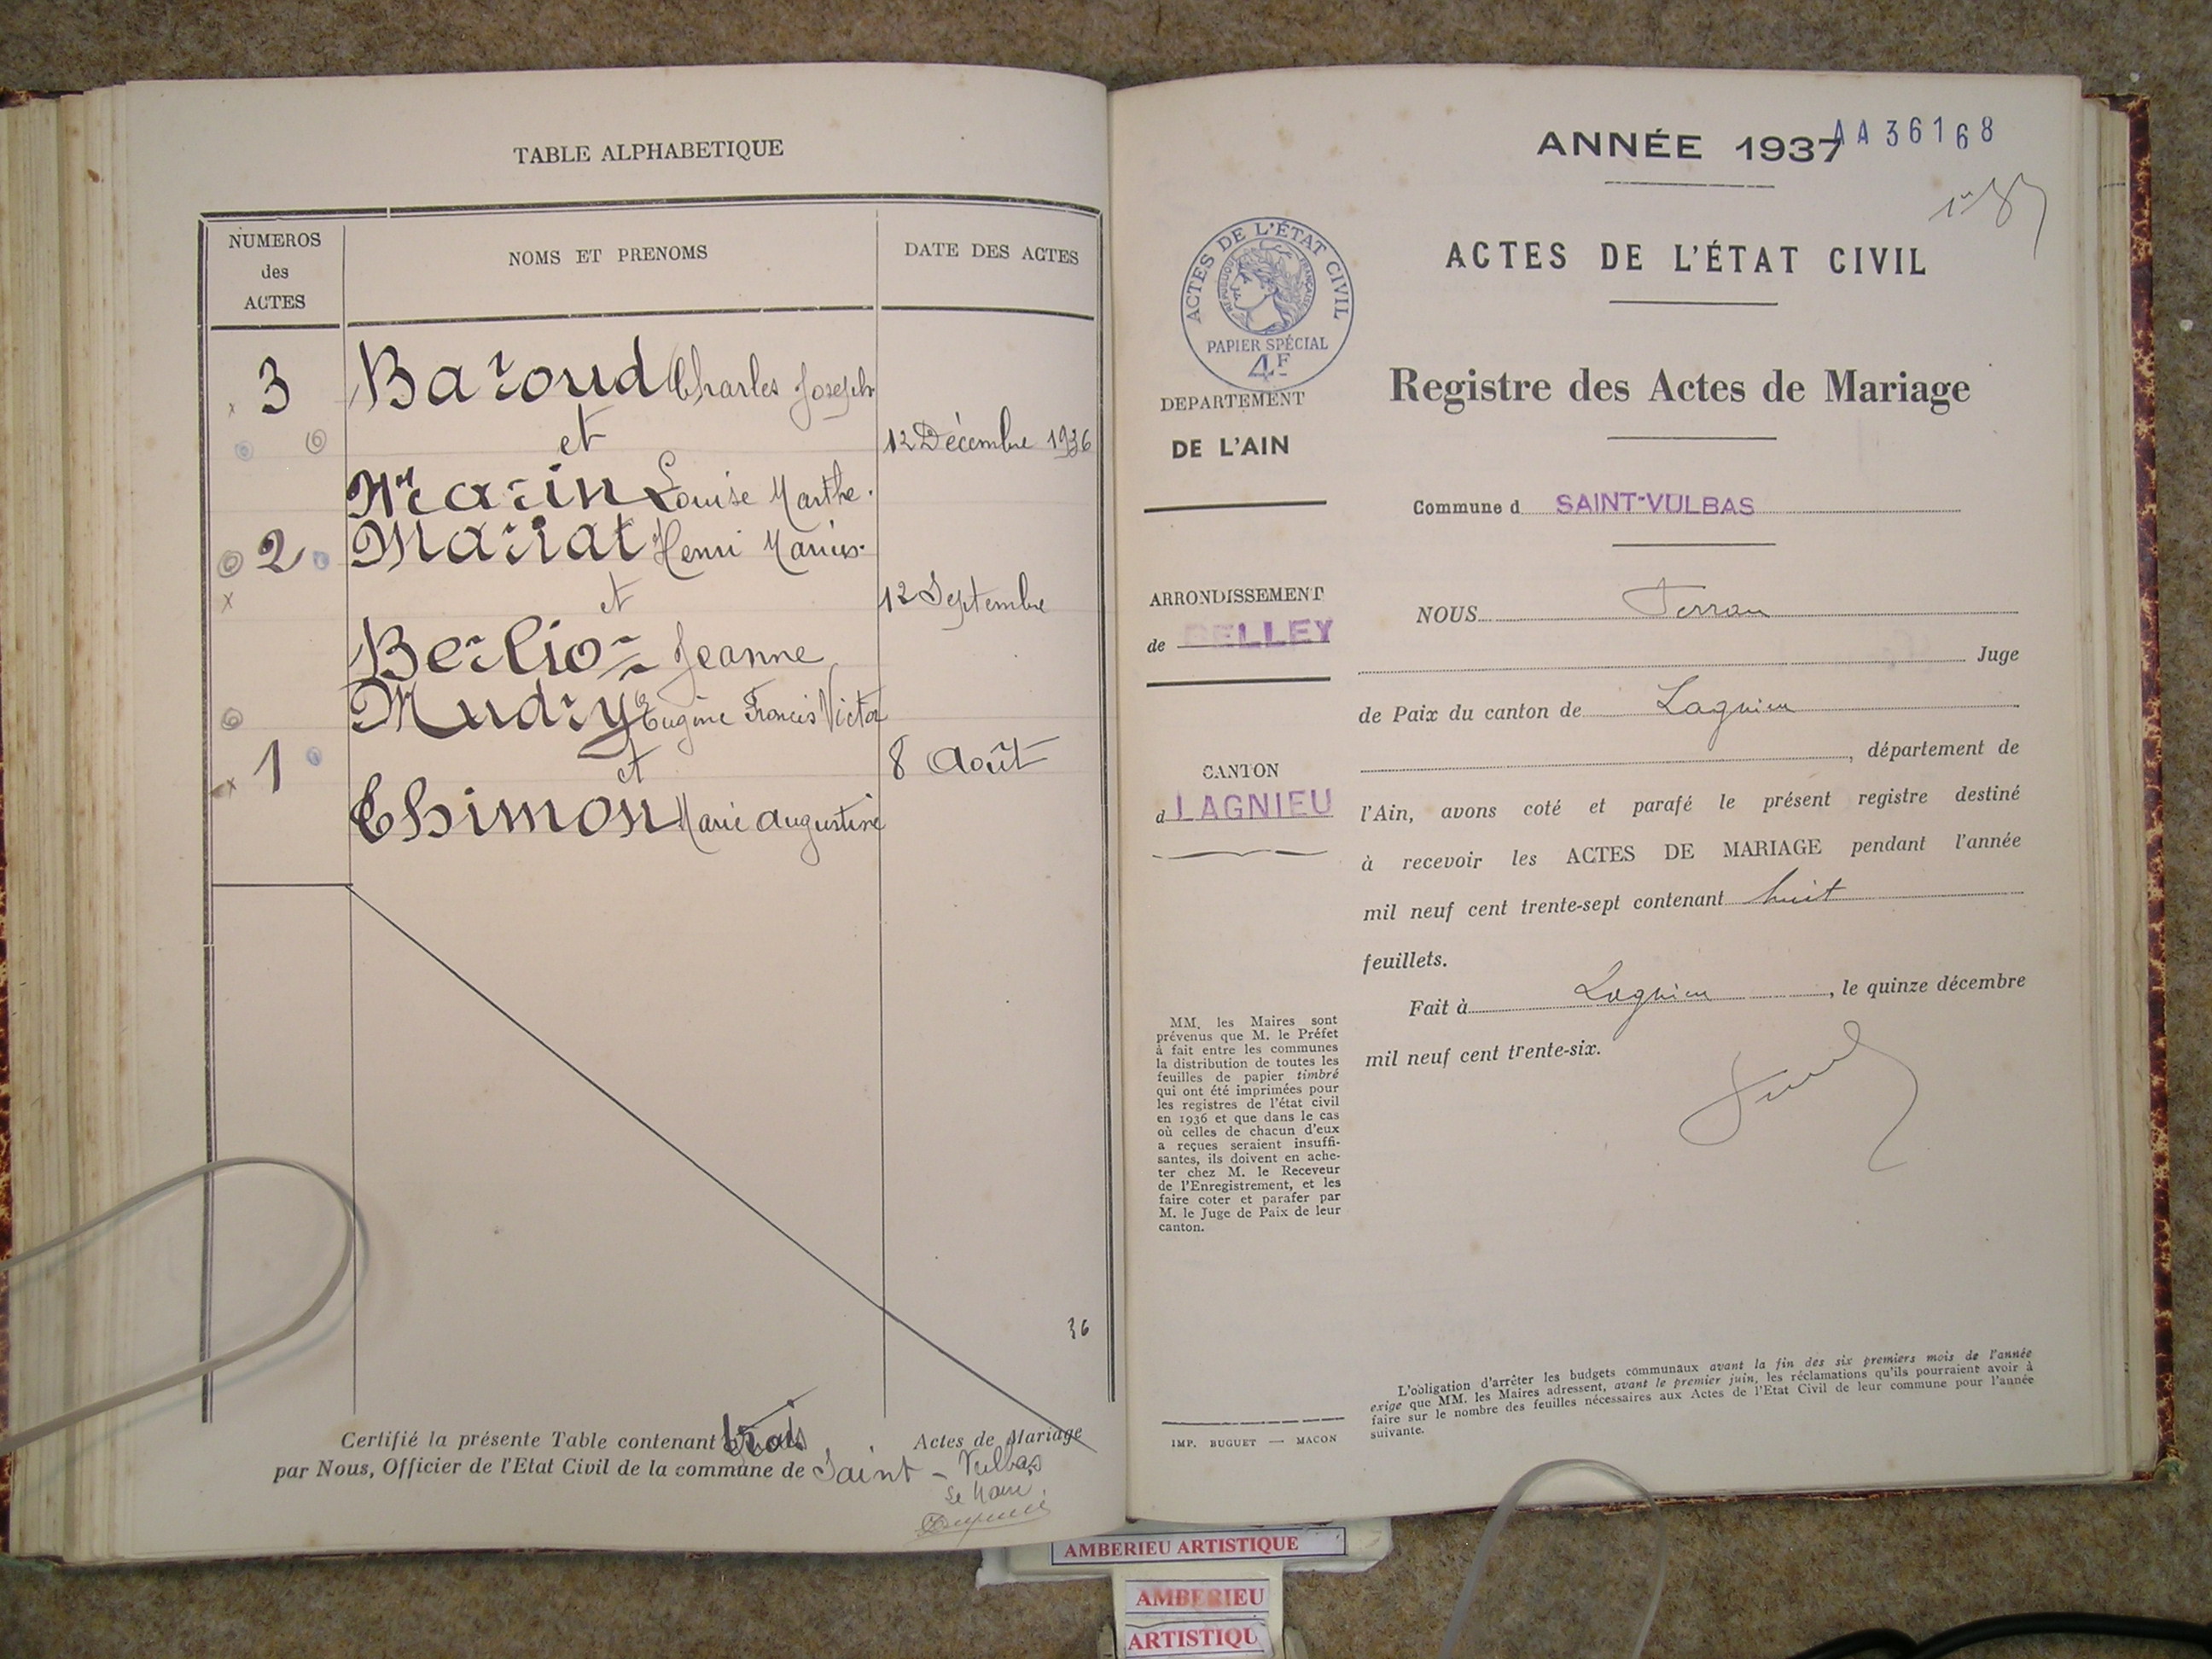 TABLE ALPHABETIQUE
NUMEROS
des
ACTES
NOMS ET PRENOMS
DATE DES ACTES
3
Baroud Charles Joseph
et
12 Décembre 1936
Marin Louise Marthe.
2
Mariat Henri Marius.
et
12 Septembre
Berlioz Jeanne
Mudry Eugène Francis Victor
1
et
8 Août
Thimon Marie Augustine
36
Certifié la présente Table contenant trois Actes de Mariage
par Nous, Officier de l'Etat Civil de la commune de Saint-Vulbas
Le Maire.
ANNÉE 1937
AA36168
ACTES DE L'ÉTAT CIVIL
ACTES DE L'ÉTAT CIVIL
RÉPUBLIQUE FRANÇAISE
PAPIER SPÉCIAL
4F
Registre des Actes de Mariage
DEPARTEMENT
DE L'AIN
Commune d SAINT-VULBAS
ARRONDISSEMENT
de BELLEY
CANTON
d LAGNIEU
NOUS Ferran
Juge
de Paix du canton de Lagnieu
, département de
l'Ain, avons coté et parafé le présent registre destiné
à recevoir les ACTES DE MARIAGE pendant l'année
mil neuf cent trente-sept contenant huit
feuillets.
Fait à Lagnieu, le quinze décembre
mil neuf cent trente-six.
MM. les Maires sont
prévenus que M. le Préfet
à fait entre les communes
la distribution de toutes les
feuilles de papier timbré
qui ont été imprimées pour
les registres de l'état civil
en 1936 et que dans le cas
où celles de chacun d'eux
a reçues seraient insuffi-
santes, ils doivent en ache-
ter chez M. le Receveur
de l'Enregistrement, et les
faire coter et parafer par
M. le Juge de Paix de leur
canton.
L'obligation d'arrêter les budgets communaux avant la fin des six premiers mois de l'année
exige que MM. les Maires adressent, avant le premier juin, les réclamations qu'ils pourraient avoir à
faire sur le nombre des feuilles nécessaires aux Actes de l'Etat Civil de leur commune pour l'année
suivante.
IMP. BUGUET — MACON
AMBERIEU ARTISTIQUE
AMBERIEU
ARTISTIQU